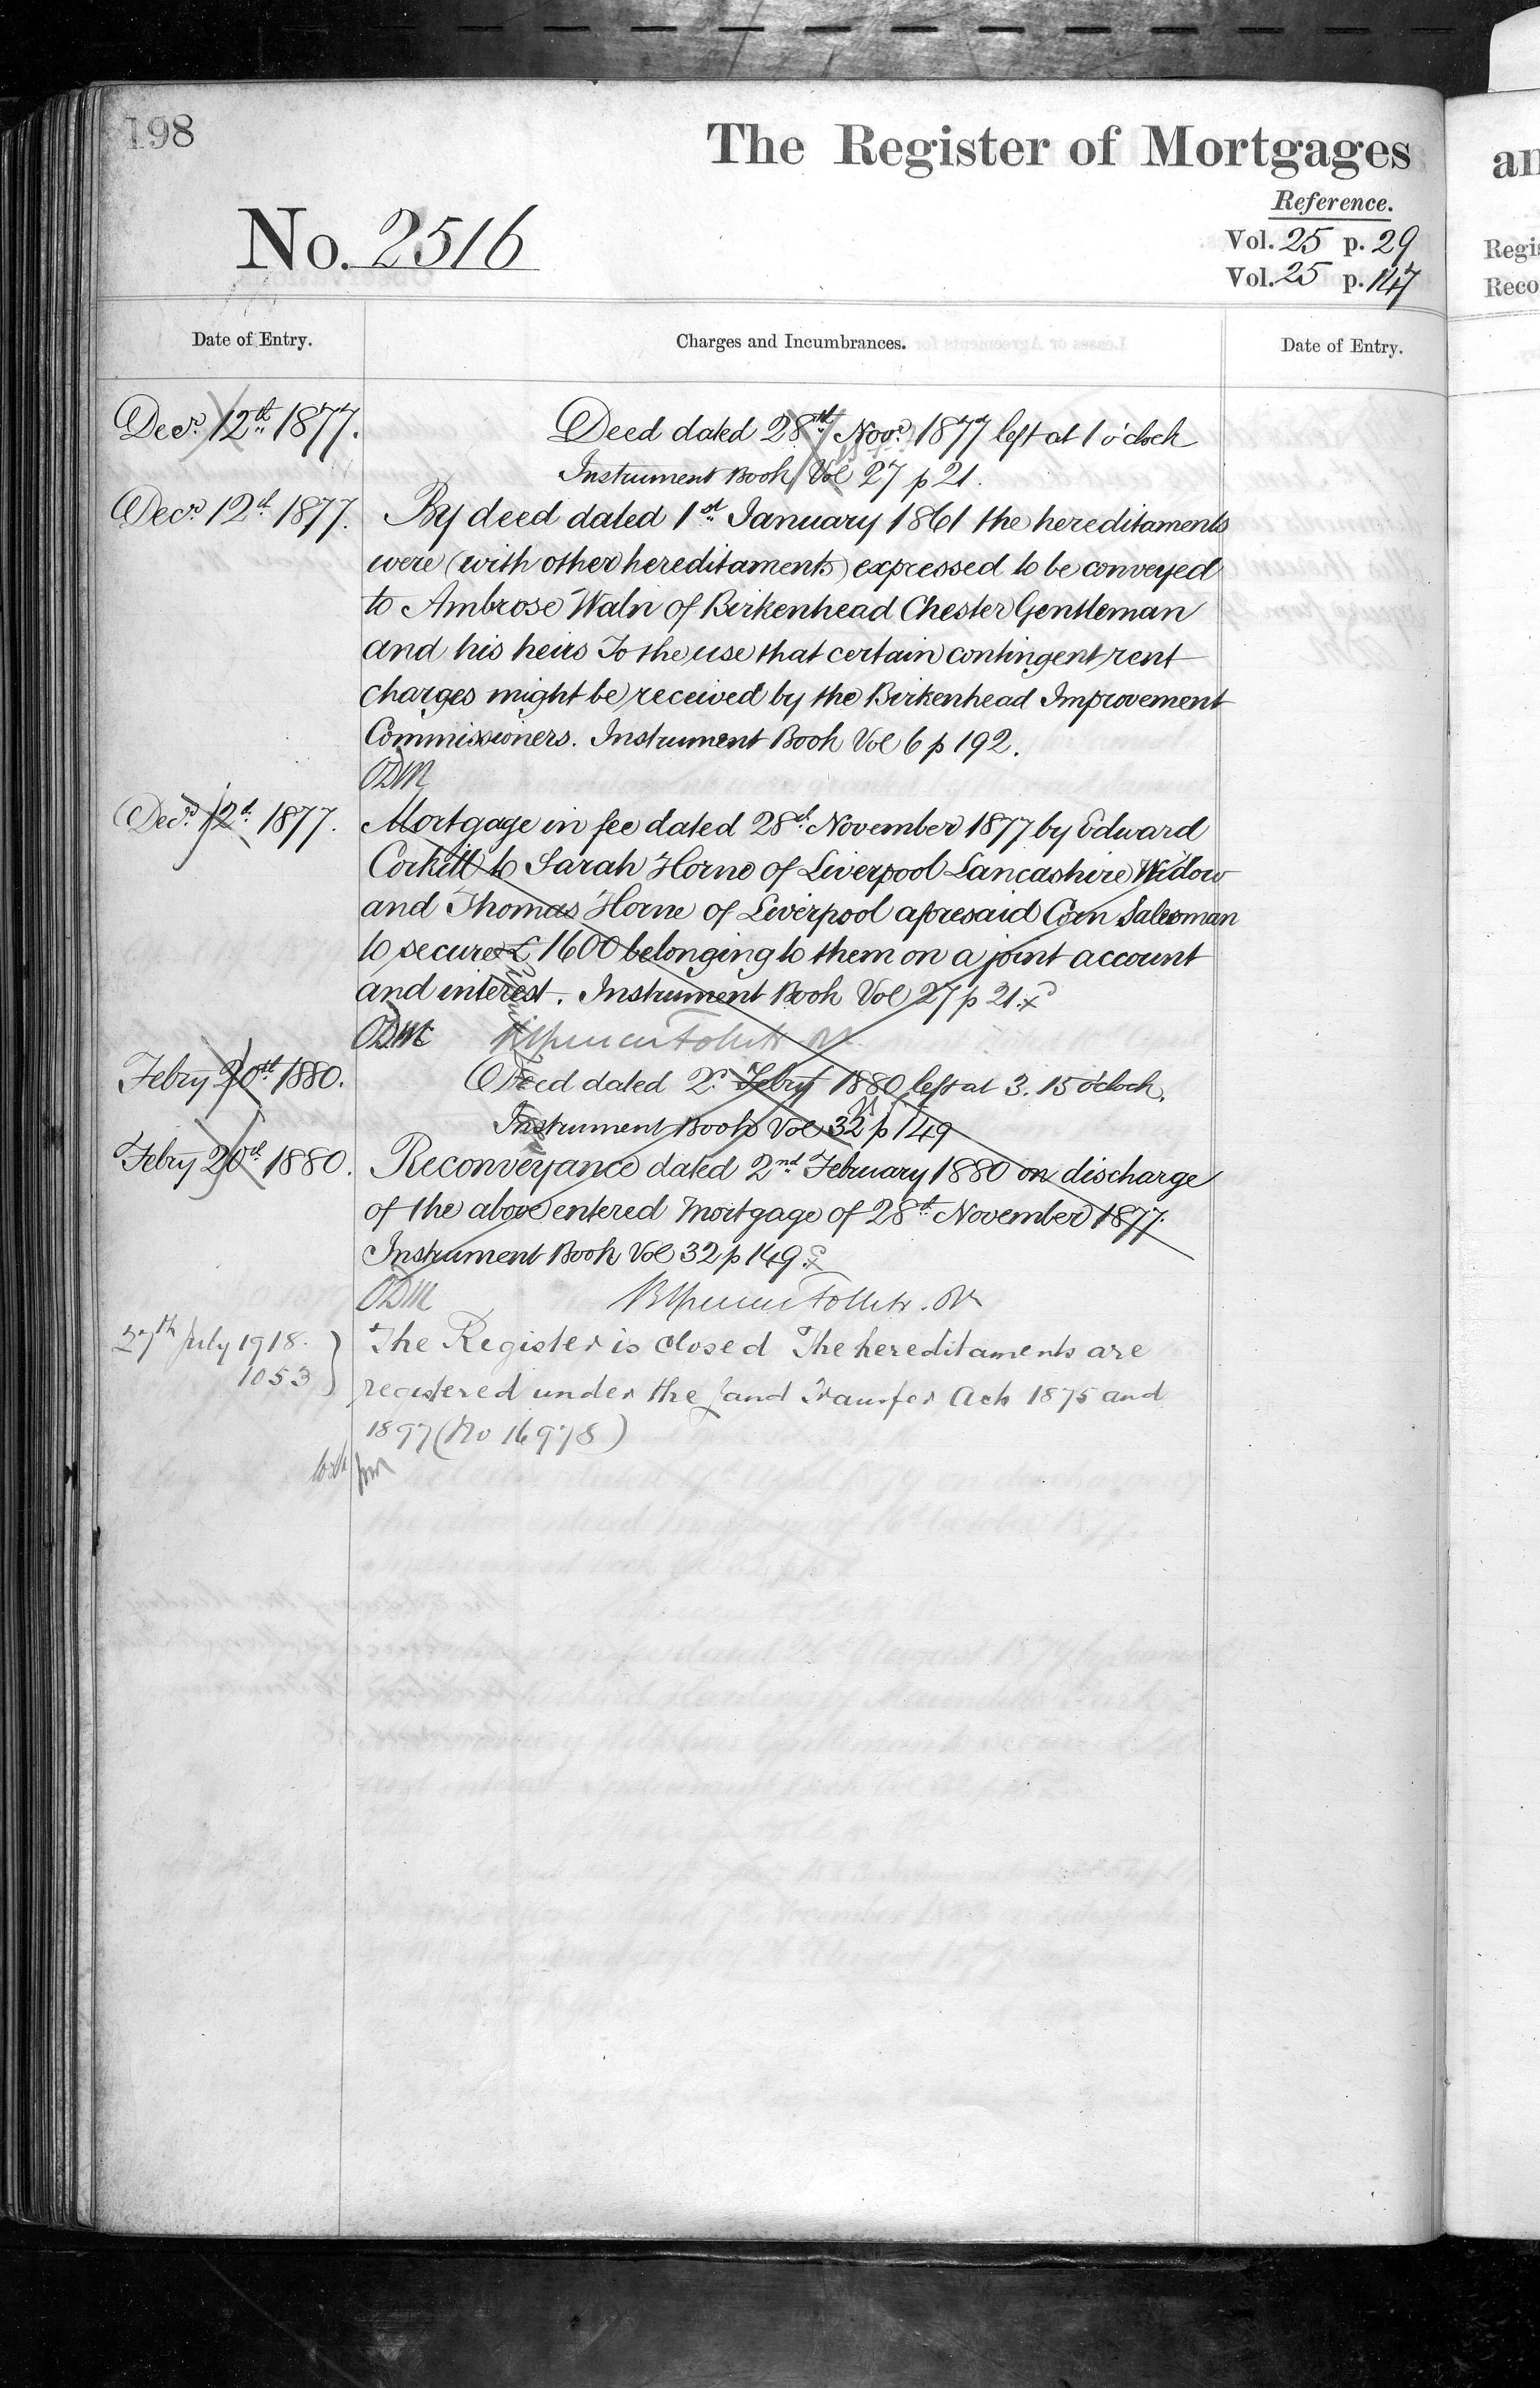 198
The Register of Mortgages
Reference.
No. 2516
Vol. 25 p. 29
Vol. 25 p. 147
Date of Entry.
Charges and Incumbrances.
Date of Entry.
Decr. 12th 1877.
Deed dated 28th Novr. 1877 left at 1 o'clock
Instrument Book Vol 27 p 21.
Decr. 12th 1877.
By deed dated 1st January 1861 the hereditaments
were (with other hereditaments) expressed to be conveyed
to Ambrose Waln of Birkenhead Chester Gentleman
and his heirs To the use that certain contingent rent
charges might be received by the Birkenhead Improvement
Commissioners. Instrument Book Vol 6 p 192.
ODM
Decr. 12th 1877.
Mortgage in fee dated 28th November 1877 by Edward
Corkill to Sarah Horne of Liverpool Lancashire Widow
and Thomas Horne of Liverpool aforesaid Corn Salesman
to secure £1600 belonging to them on a joint account
and interest. Instrument Book Vol 27 p 21.
ODM
Febry 20th 1880.
Deed dated 2d. Febry 1880 left at 3.15 o'clock.
Instrument Book Vol 32 p 149
Febry 20th 1880.
Reconveyance dated 2nd February 1880 on discharge
of the above entered Mortgage of 28th November 1877.
Instrument Book Vol 32 p 149.
ODM
27th July 1918.
1053
The Register is closed The hereditaments are
registered under the Land Transfer Acts 1875 and
1897 (No 16978)
an
Regis
Reco